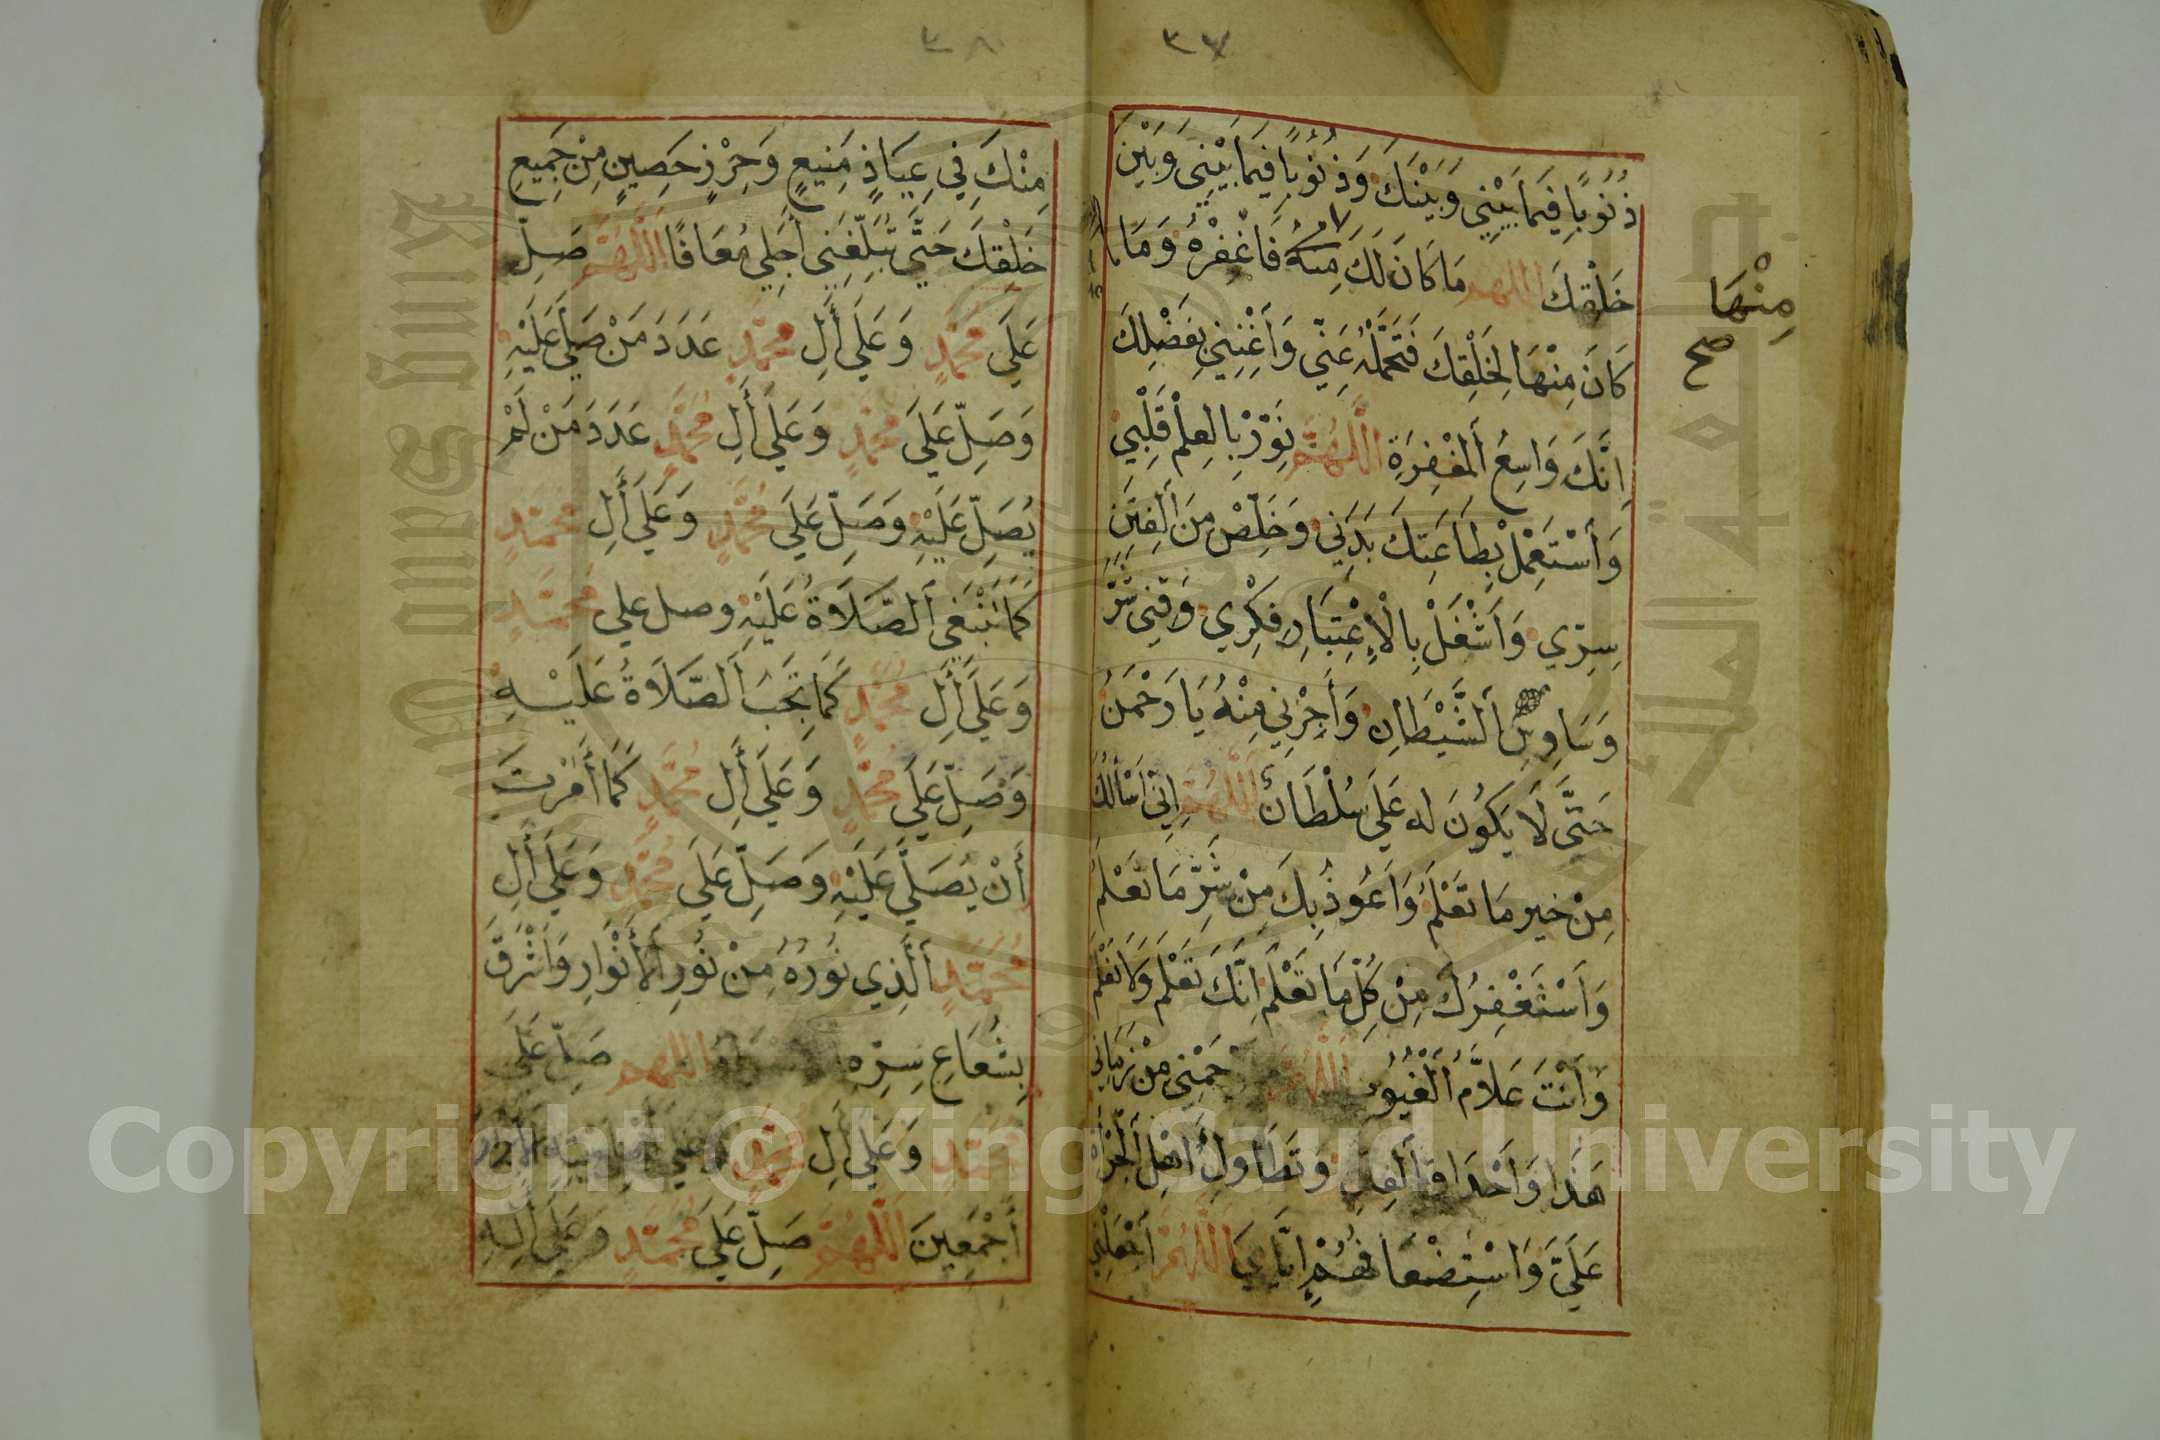 ٣٧
ذُنُوبًا فِيمَا بَيْنِي وَبَيْنَكَ وَذُنُوبًا فِيمَا بَيْنِي وَبَيْنَ
خَلْقِكَ اللهم مَا كَانَ لَكَ مِنْهُ فَاغْفِرْهُ وَمَا
مِنْهَا
صح
كَانَ مِنْهَا لِخَلْقِكَ فَتَحَمَّلْهُ عَنِّي وَأَغْنِنِي بِفَضْلِكَ
إِنَّكَ وَاسِعُ الْمَغْفِرَةِ اللَّهُمَّ نَوِّرْ بِالْعِلْمِ قَلْبِي
وَأَسْتَعْمِلْ بِطَاعَتِكَ بَدَنِي وَخَلِّصْ مِنَ الْفِتَنِ
سِرِّي وَأَشْغَلْ بِالْإِعْتِبَارِ فِكْرِي وَقِنِي شَرَّ
وَسَاوِسِ الشَّيْطَانِ وَأَجِرْنِي مِنْهُ يَا رَحْمَنُ
حَتَّى لَا يَكُونَ لَهُ عَلَيَّ سُلْطَانٌ اللَّهُمَّ إِنِّي أَسْأَلُكَ
مِنْ خَيْرِ مَا تَعْلَمُ وَأَعُوذُ بِكَ مِنْ شَرِّ مَا تَعْلَمُ
وَأَسْتَغْفِرُكَ مِنْ كُلِّ مَا تَعْلَمُ إِنَّكَ تَعْلَمُ وَلَا نَعْلَمُ
وَأَنْتَ عَلَّامُ الْغُيُوبِ اللَّهُمَّ مِنْ زَمَانِي
هَذَا وَأَحْدَاقِ الْفِتَنِ وَتَطَاوُلِ أَهْلِ الْجُرْأَةِ
عَلَيَّ وَاسْتِضْعَافِهِمْ إِيَّايَ اللَّهُمَّ اجْعَلْنِي
٣٨
مِنْكَ فِي عِيَاذٍ مَنِيعٍ وَحِرْزٍ حَصِينٍ مِنْ جَمِيعِ
خَلْقِكَ حَتَّى تُبَلِّغَنِي أَجَلِي مُعَافًا اللَّهُمَّ صَلِّ
عَلَى مُحَمَّدٍ وَعَلَى أَلِ مُحَمَّدٍ عَدَدَ مَنْ صَلَّى عَلَيْهِ
وَصَلِّ عَلَى مُحَمَّدٍ وَعَلَى أَلِ مُحَمَّدٍ عَدَدَ مَنْ لَمْ
يُصَلِّ عَلَيْهِ وَصَلِّ عَلَى مُحَمَّدٍ وَعَلَى أَلِ مُحَمَّدٍ
كَمَا تَنْبَغِي الصَّلَاةُ عَلَيْهِ وصل على مُحَمَّدٍ
وَعَلَى أَلِ مُحَمَّدٍ كَمَا تَجِبُ الصَّلَاةُ عَلَيْهِ
وَصَلِّ عَلَى مُحَمَّدٍ وَعَلَى أَلِ مُحَمَّدٍ كَمَا أَمَرْتَ
أَنْ يُصَلَّى عَلَيْهِ وَصَلِّ عَلَى مُحَمَّدٍ وَعَلَى أَلِ
مُحَمَّدٍ الَّذِي نُورُهُ مِنْ نُورِ الْأَنْوَارِ وَأَشْرَقَ
بِشُعَاعِ سِرِّهِ اللهم صَلِّ عَلَى
مُحَمَّدٍ وَعَلَى أَلِ مُحَمَّدٍ وَعَلَى
أَجْمَعِينَ اللَّهُمَّ صَلِّ عَلَى مُحَمَّدٍ وَعَلَى أَلِهِ
Copyright © King Saud University